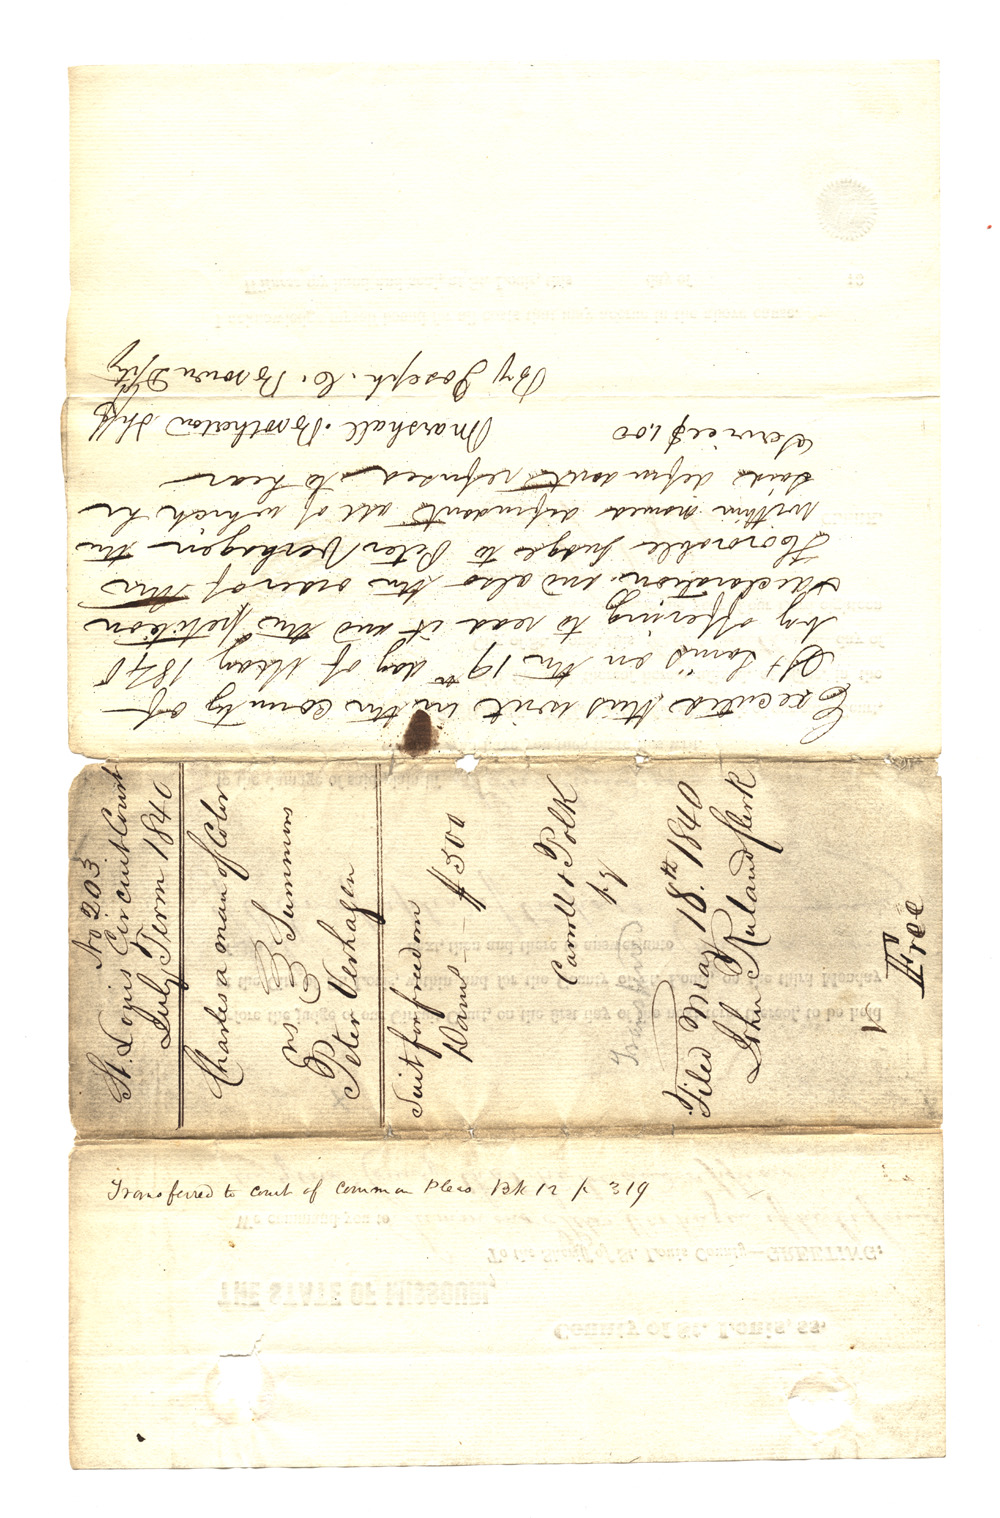 Executed this writ in the county of
St Louis on the 19th day of May 1840
by offering to read it and the petition
declaration and also the order of the
Honorable Judge to Peter Verhagen the
within named defendant all of which he
said defendant refused to hear
Service $1.00 Marshall Brotherton Shff
By Joseph C. Brown Dpty
No 203
St. Louis Circuit Court
July Term 1840
Charles a man of Color
vs Summons
Peter Verhagen
Suit for freedom
Dams — $500
Carroll & Polk
p.q
Filed May 18th. 1840
John Ruland Clerk
Free
Transferred to Court of Common Pleas Bk 12 p 319
County of St. Louis, ss.
THE STATE OF MISSOURI,
To the Sheriff of St. Louis County—GREETING:
We command you to